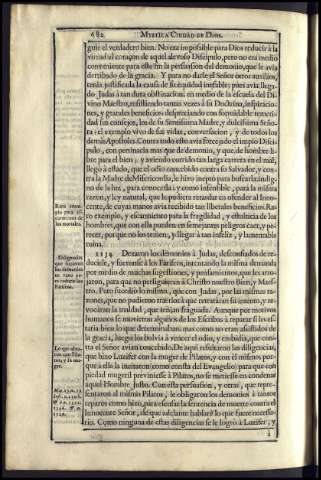 682 MYSTICA CIUDAD DE DIOS.
guir el verdadero bien. No era imposible para Dios reducir à la
virtud el coraçon de aquel alevoso Discipulo, pero no era medio
conveniente para este fin la persuasion del demonio, que le avia
derribado de la gracia. Y para no darle el Señor otros auxilios,
tenia justificada la causa de su equidad inefable; pues avia llega-
do Judas à tan dura obstinacion en medio de la escuela del Di-
vino Maestro, resistiendo tantas vezes à su Doctrina, inspiracio-
nes, y grandes beneficios despreciando con
dad sus consejos, los de su Santissima Madre, y dulcissima Seño-
ra: el exemplo vivo de sus vidas, conversacion, y de todos los
demàs Apostoles. Contra todo avia forcejado el impio Discipu-
lo, con pertinacia mas que de demonio, y que de hombre li-
bre para el bien; y aviendo corrido tan larga carrera en el mal,
llegò à estado, que el odio concebido contra su Salvador, y con-
tra la Madre de Misericordia, le hizo inepto para buscarla, indig-
no de la luz, para conocerla; y como insensible, para la misma
razon, y ley natural, que le pudiera retardar en ofender al Inoce-
te, de cuyas manos avia recibido tan liberales beneficios. Raro
exemplo, y escarmiento para la fragilidad, y estulticia de los
hombres, que con ella pueden en semejantes peligros caer, y pe-
recer, porque no los temen, y llegar à tan infeliz, y lamentable
ruina.
1134 Dexaron los demonios à Judas, desconfiados de re-
ducirle, y fueronse à los Fariseos, intentando la misma demanda
por medio de muchas sugestiones, y pensamientos, que les arro-
jaron, para que no persiguiessen à Christo nuestro Bien, y Maes-
tro. Pero sucediò lo mismo, que con Judas, por las mismas ra-
zones, que no pudieron traerlos à que retratassen su intento, y re-
vocassen la maldad, que tenian fraguada. Aunque por motivos
humanos se movieron algunos de los Escribas à reparar si les es-
taria bien lo que determinaban: mas como no eran assistidos de
la gracia, luego los bolvia à vencer el odio, y embidia, que con-
tra el Señor avian concebido. De aqui resultaron las diligencias,
que hizo Luzifer con la muger de Pilatos, y con èl mismo; por-
que à ella la incitaron (como consta del Evangelio) para que con
piedad mugeril previniesse à Pilatos, no se metiesse en condenar
aquel Hombre Justo. Con esta persuasion, y otras, que repre-
sentaron al mismo Pilatos, le obligaron los demonios à tantos
reparos como hizo, para escusar la sentencia de muerte contra el
inocente Señor, de que adelante hablarè lo que fuere necessa-
rio. Como ninguna de estas diligencias se le logrò à Luzifer, y
Raro exem-
plo para es-
carmiento de
los mortales.
Diligencias
que hizieron
los demonios
en vano pa-
ra reducir los
Fariseos.
Lo que obra-
ron con Pila-
tos, y su mu-
ger.